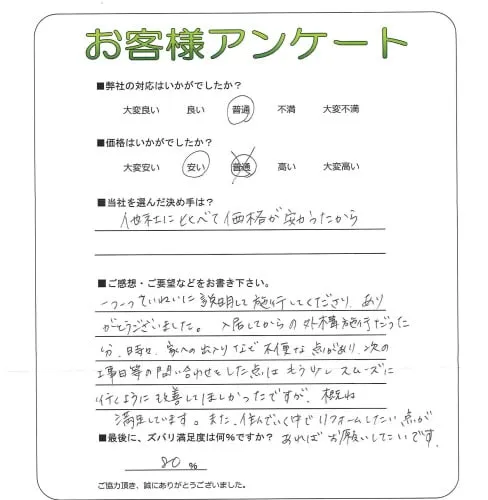 お客様アンケート
■弊社の対応はいかがでしたか?
大変良い 良い 普通 不満 大変不満
■価格はいかがでしたか?
大変安い 安い 普通 高い 大変高い
■当社を選んだ決め手は?
他社に比べて価格が安かったから
■ご感想・ご要望などをお書き下さい。
一つ一つていねいに説明して施行してくださり、あり
がとうございました。 入居してからの外構施行だった
分、日時や、家への出入りなど不便な点があり、次の
工事日等の問い合わせをした点はもう少しスムーズに
行くように改善してほしかったですが、概ね
満足しています。また、住んでいく中でリフォームしたい点が
■最後に、ズバリ満足度は何%ですか? あればお願いしたいです。
80 %
ご協力頂き、誠にありがとうございました。